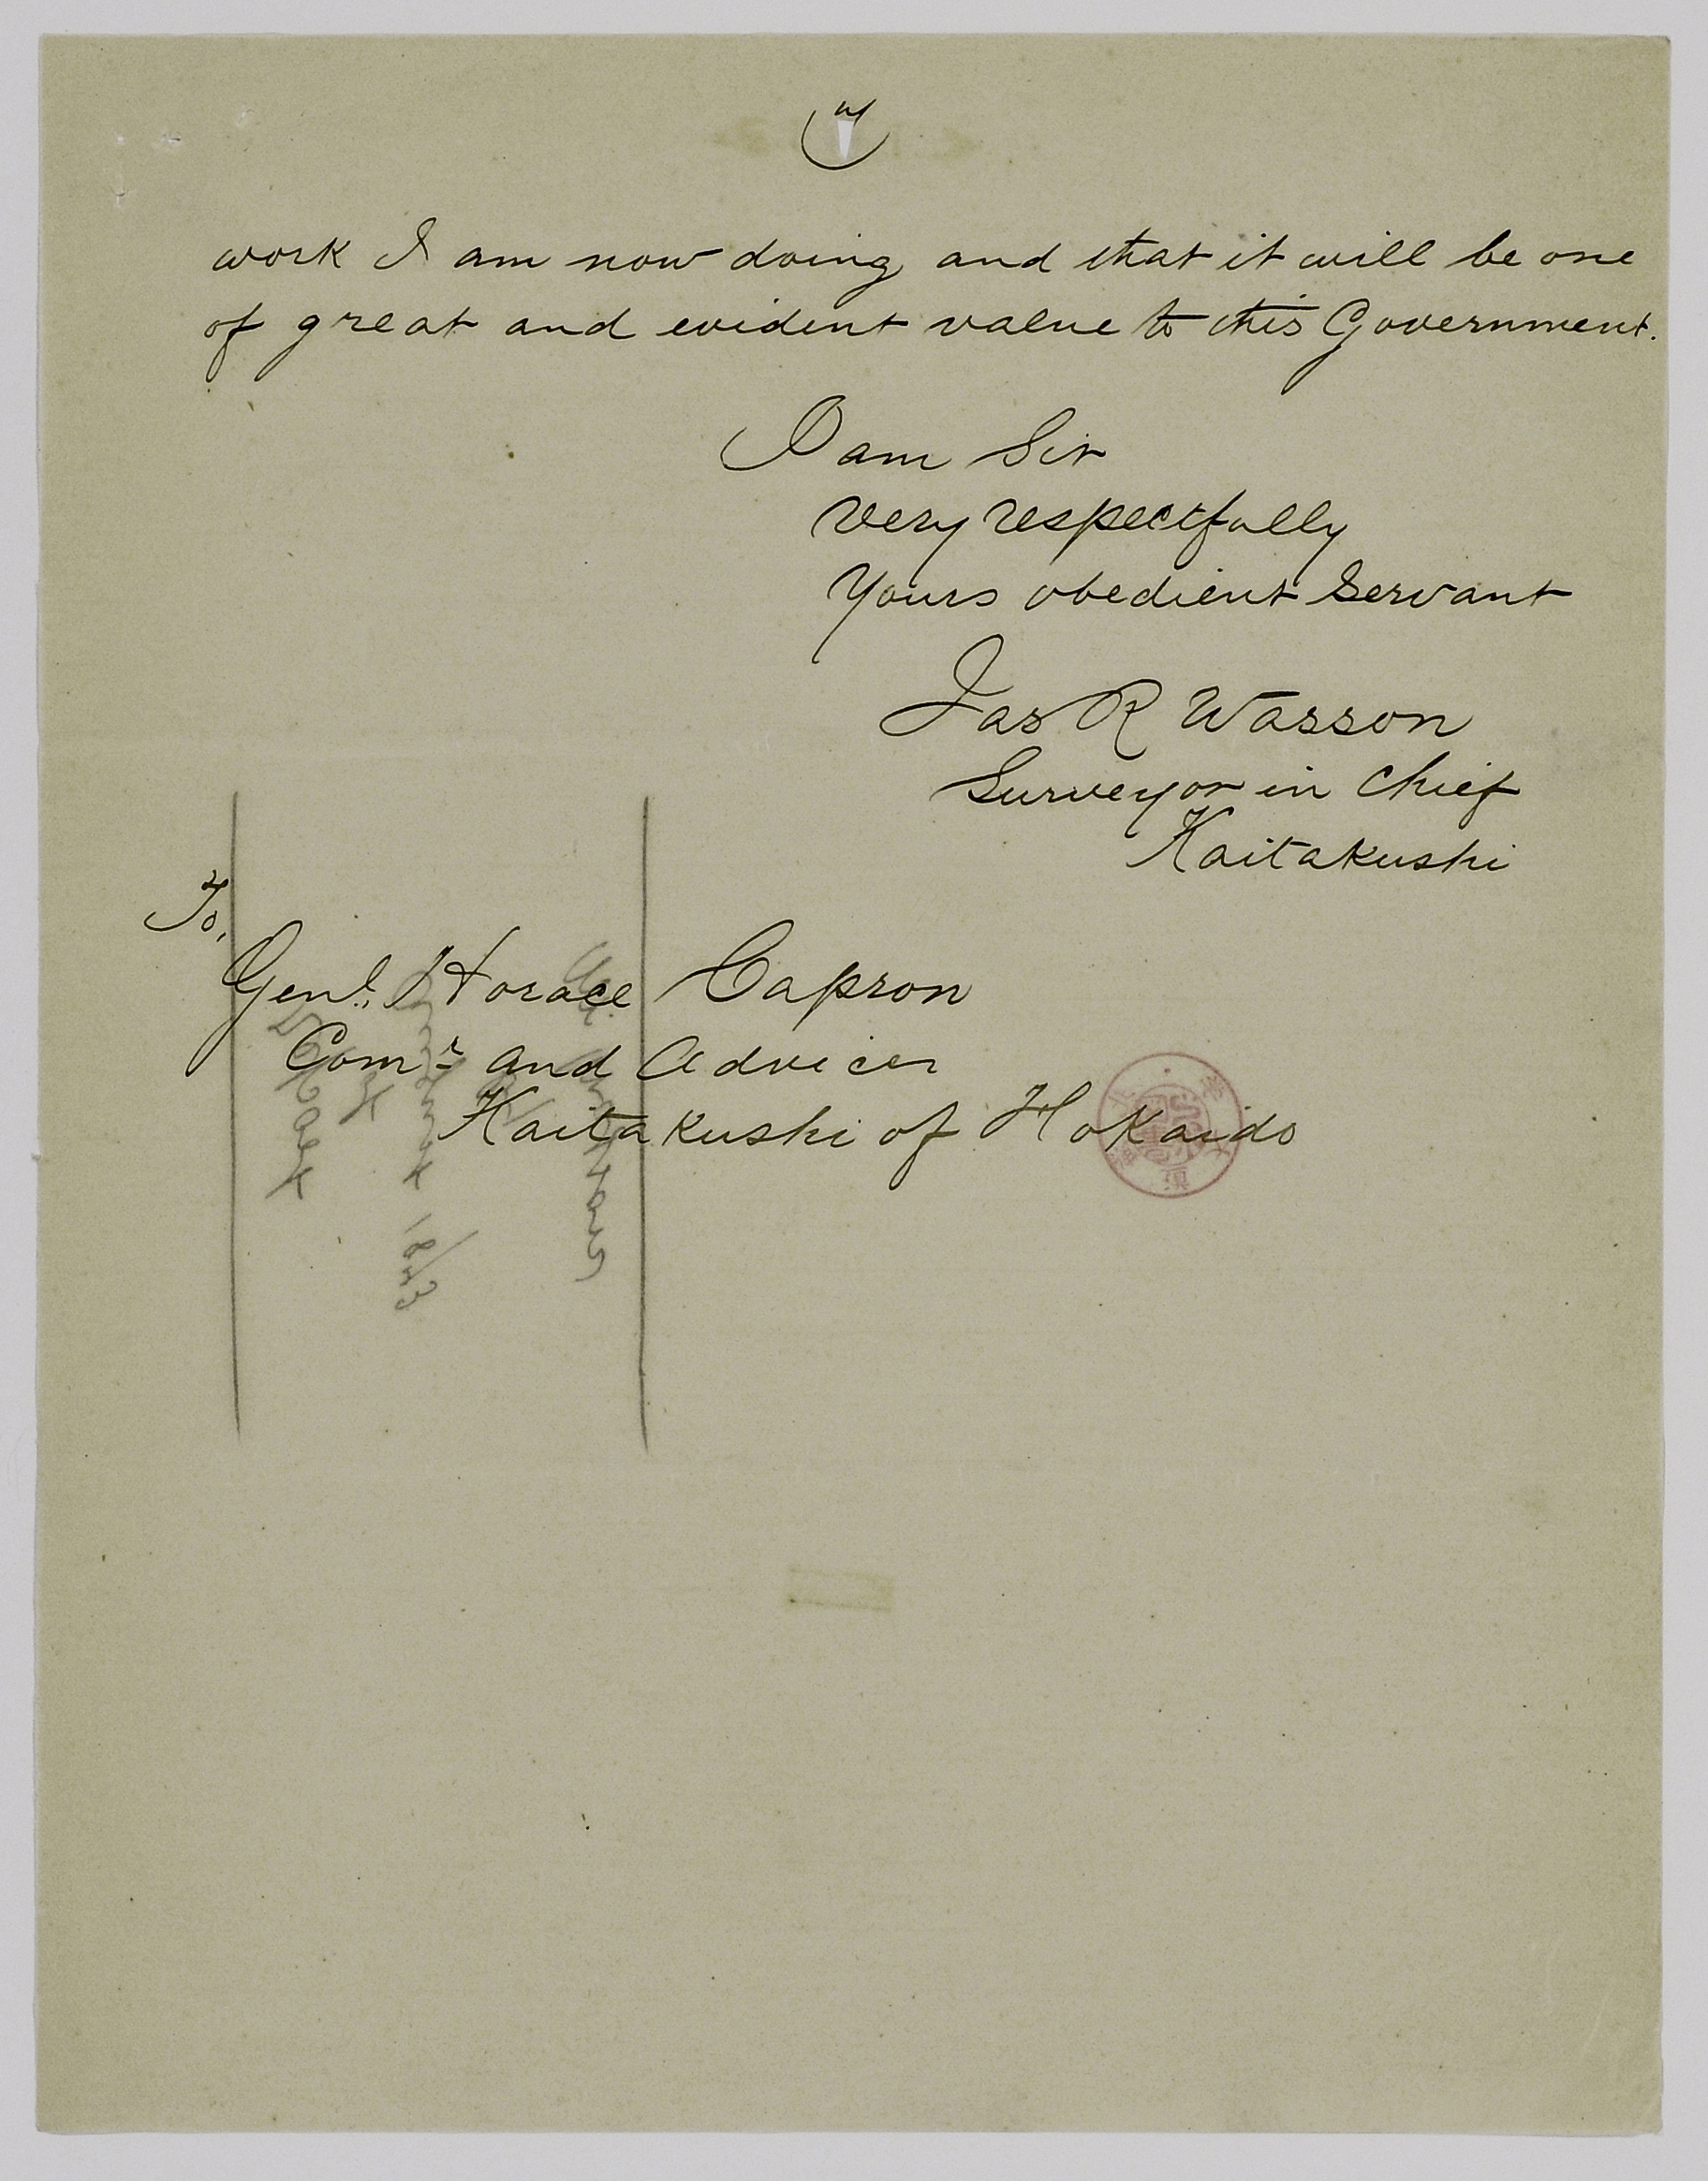 work I am now doing and that it will be one
of great and evident value to this Government.
I am Sir
Very respectfully
Yours obedient Servant
Jas R Wasson
Surveyor in Chief
Kaitakushi
To,
Genl. Horace Capron
Comr and Advicer
Kaitakushi of Hokaido